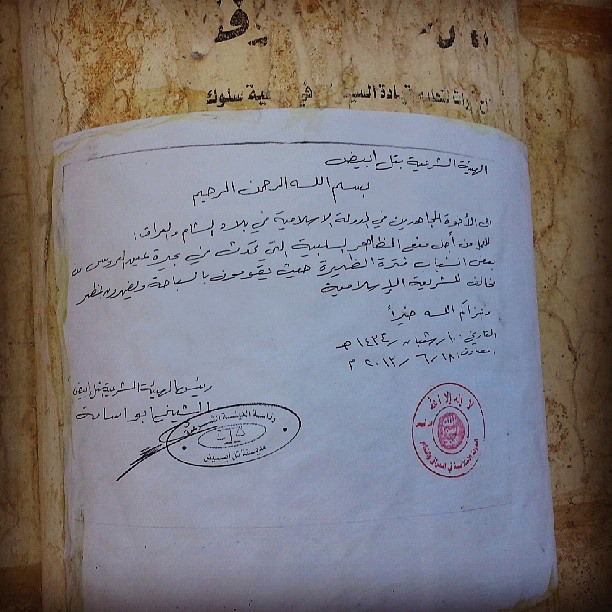 دة السي في سلوك
الهيئة الشرعية بتل أبيض
بسم الله الرحمن الرحيم
إلى الأخوة المجاهدين في الدولة الإسلامية في بلاد الشام والعراق :
للعمل من أجل منع المظاهر السلبية التي تحدث في بحيرة عين العروس من
بعض الشباب فترة الظهيرة حيث يقومون بالسباحة بمظهر
مخالف للشريعة الإسلامية
وجزاكم الله خيراً
التاريخ ١٠ / شعبان / ١٤٣٤ هـ
الموافق ١٨ / ٦ / ٢٠١٣ م
رئيس الهيئة الشرعية بتل أبيض
الشيخ أبو أسامة
مدينة تل أبيض
لا إله إلا الله
الدولة الإسلامية في العراق والشام